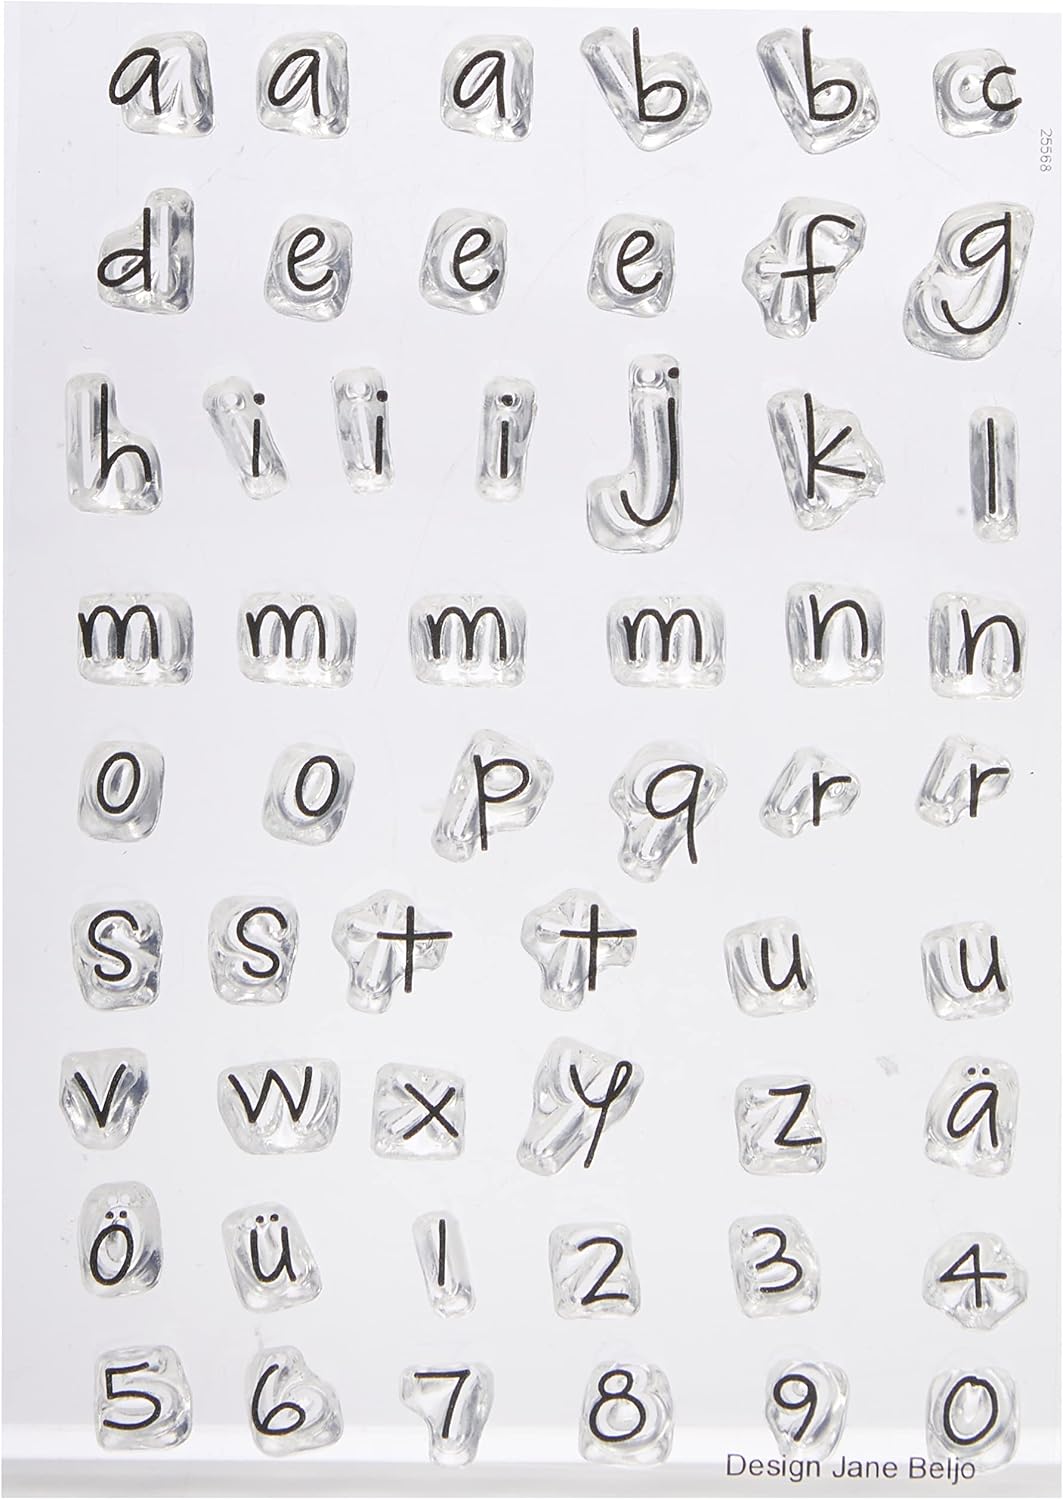 a a a b b c
25568
d e e e f g
h i i i j k l
m m m m n n
o o p q r r
s s t t u u
v w x y z ä
ö ü 1 2 3 4
5 6 7 8 9 0
Design Jane Beljo